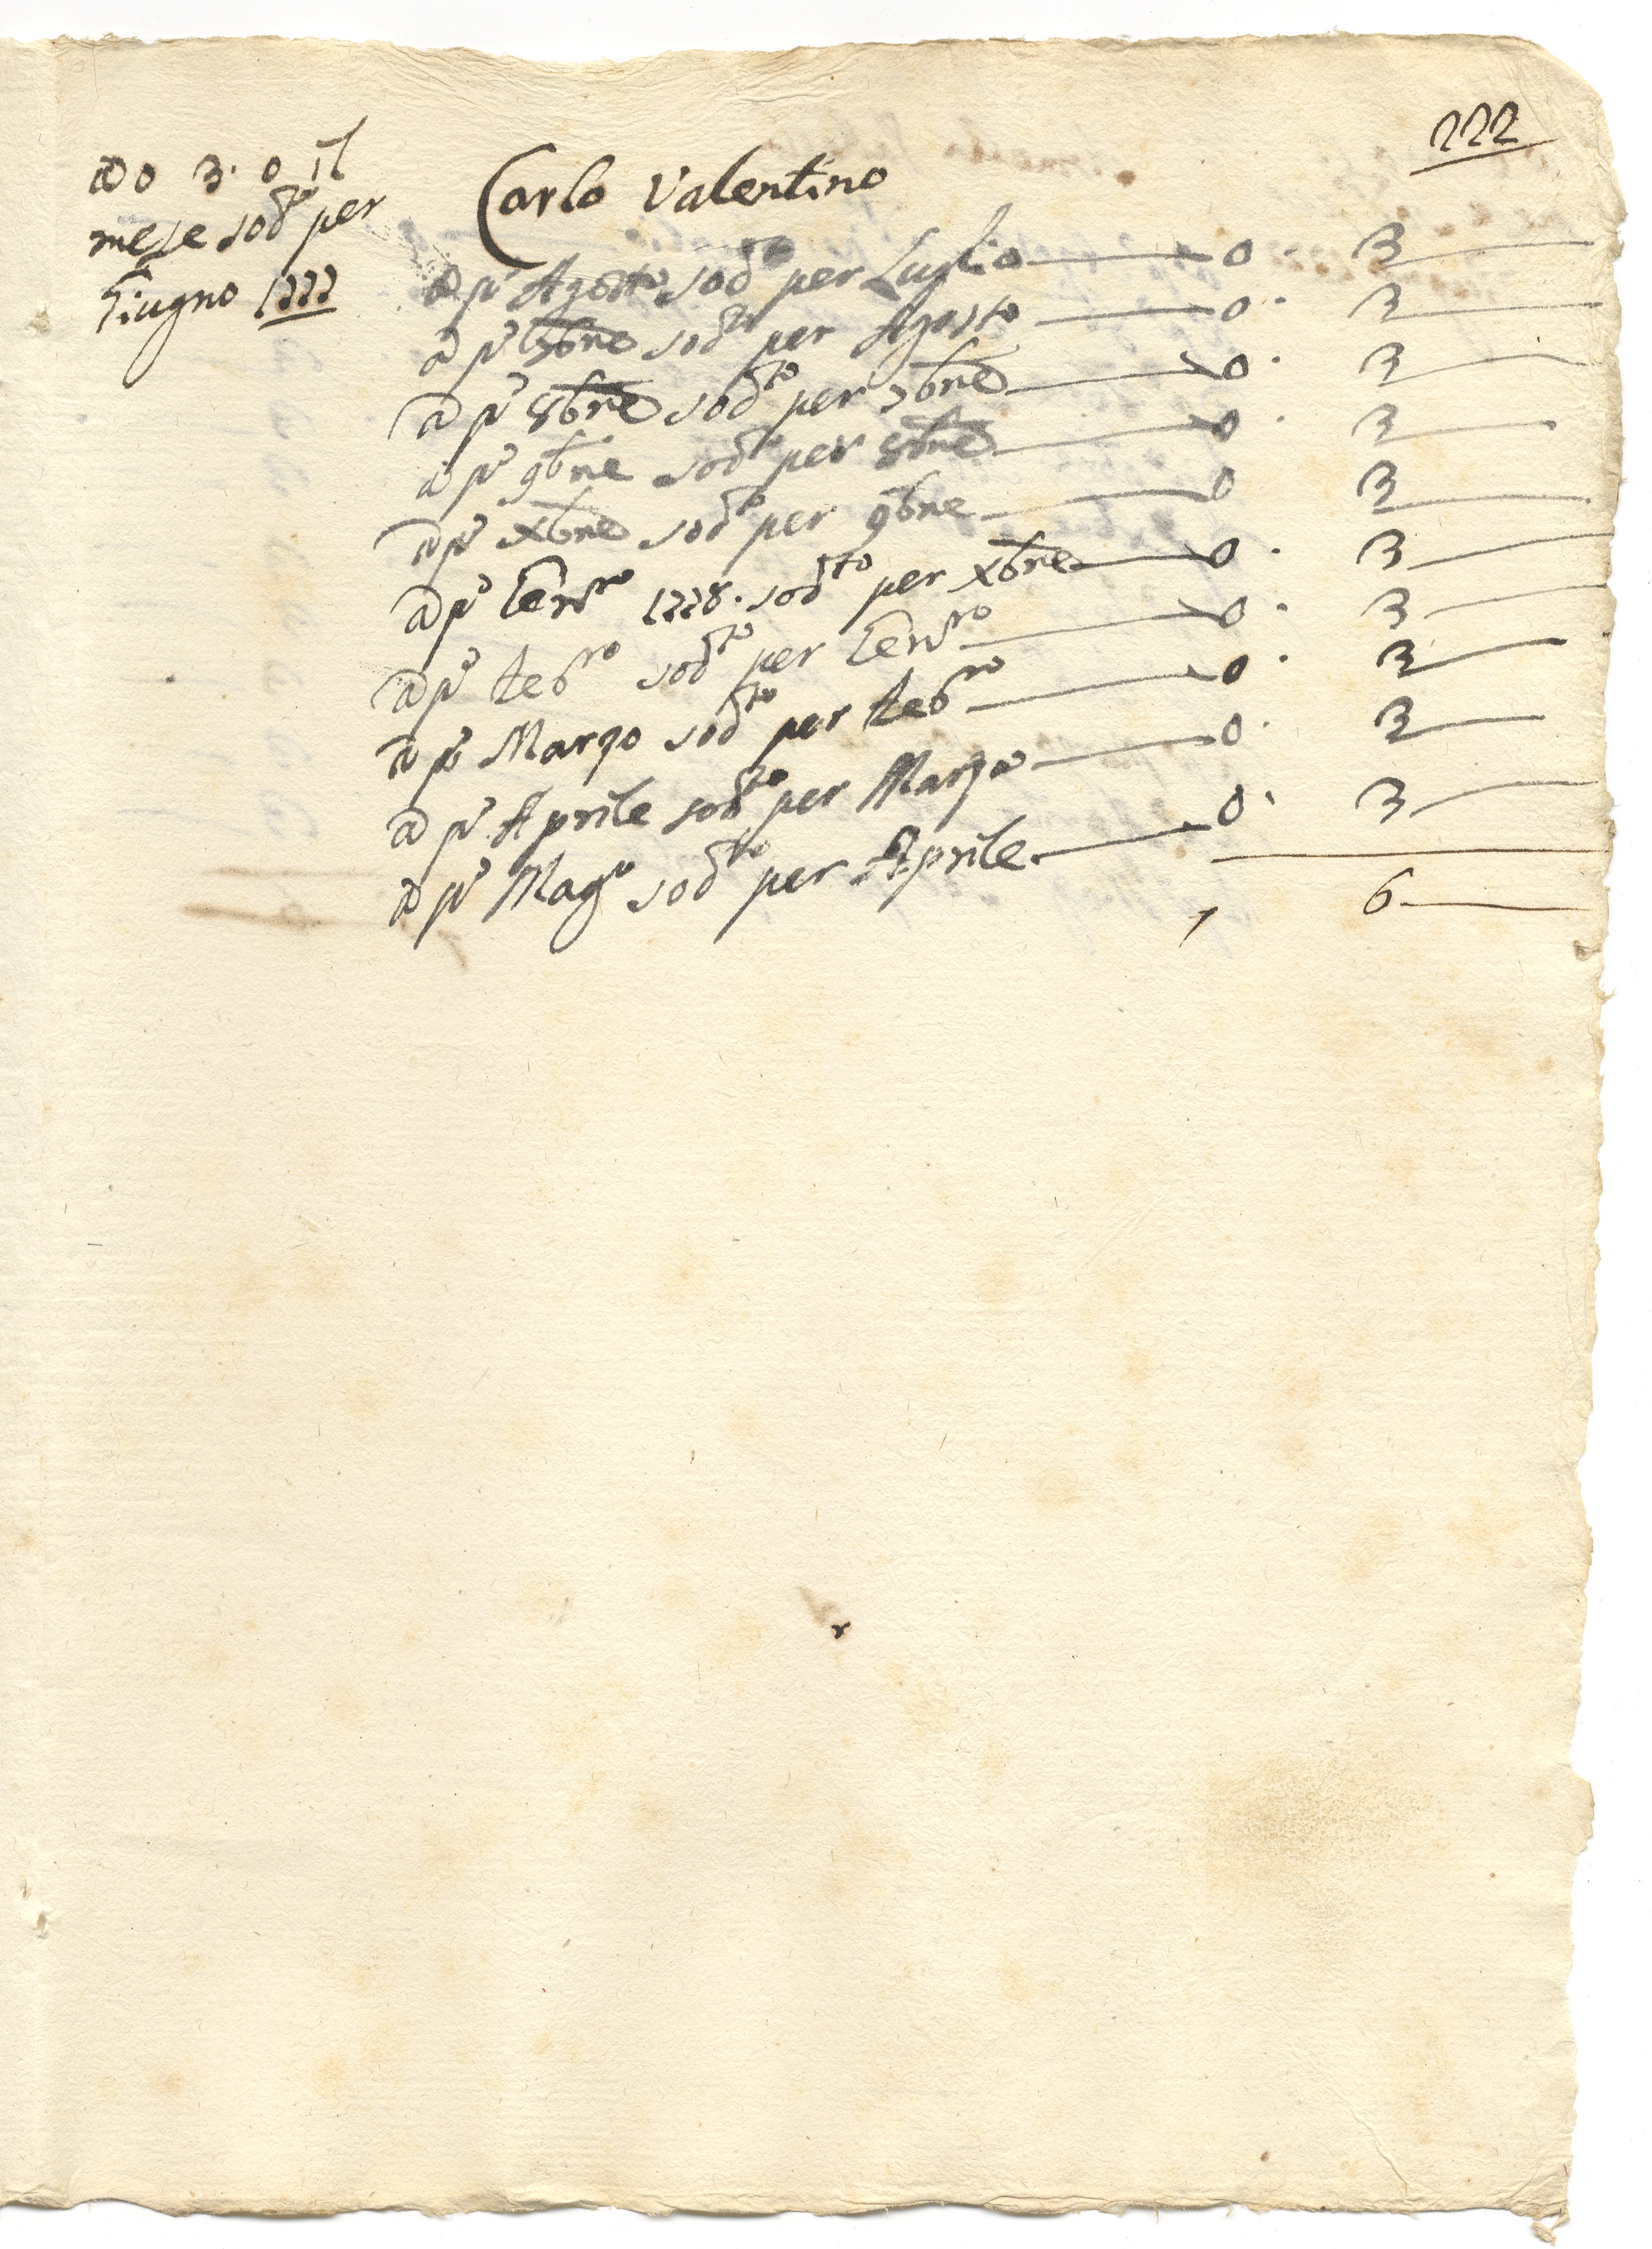 222
a 0 3. 0 il
mese sod.to per
Giugno 1777
Carlo Valentino
a p.o Agosto sod.to per Luglio — 0 3 —
a p.o 7bre sod.to per Agosto — 0. 3 —
a p.o 8bre sod.to per 7bre — 0. 3 —
a p.o 9bre sod.to per 8bre — 0. 3 —
a p.o Xbre sod.to per 9bre — 0 3 —
a p.o Gen.ro 1778. sod.to per Xbre — 0. 3 —
a p.o feb.ro sod.to per Gen.ro — 0. 3 —
a p.o Marzo sod.to per feb.ro — 0. 3 —
a p.o Aprile sod.to per Marzo — 0. 3 —
a p.o Mag.o sod.to per Aprile — 0. 3 —
6 —